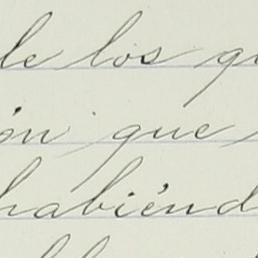 de los qu
ón que
habiénd